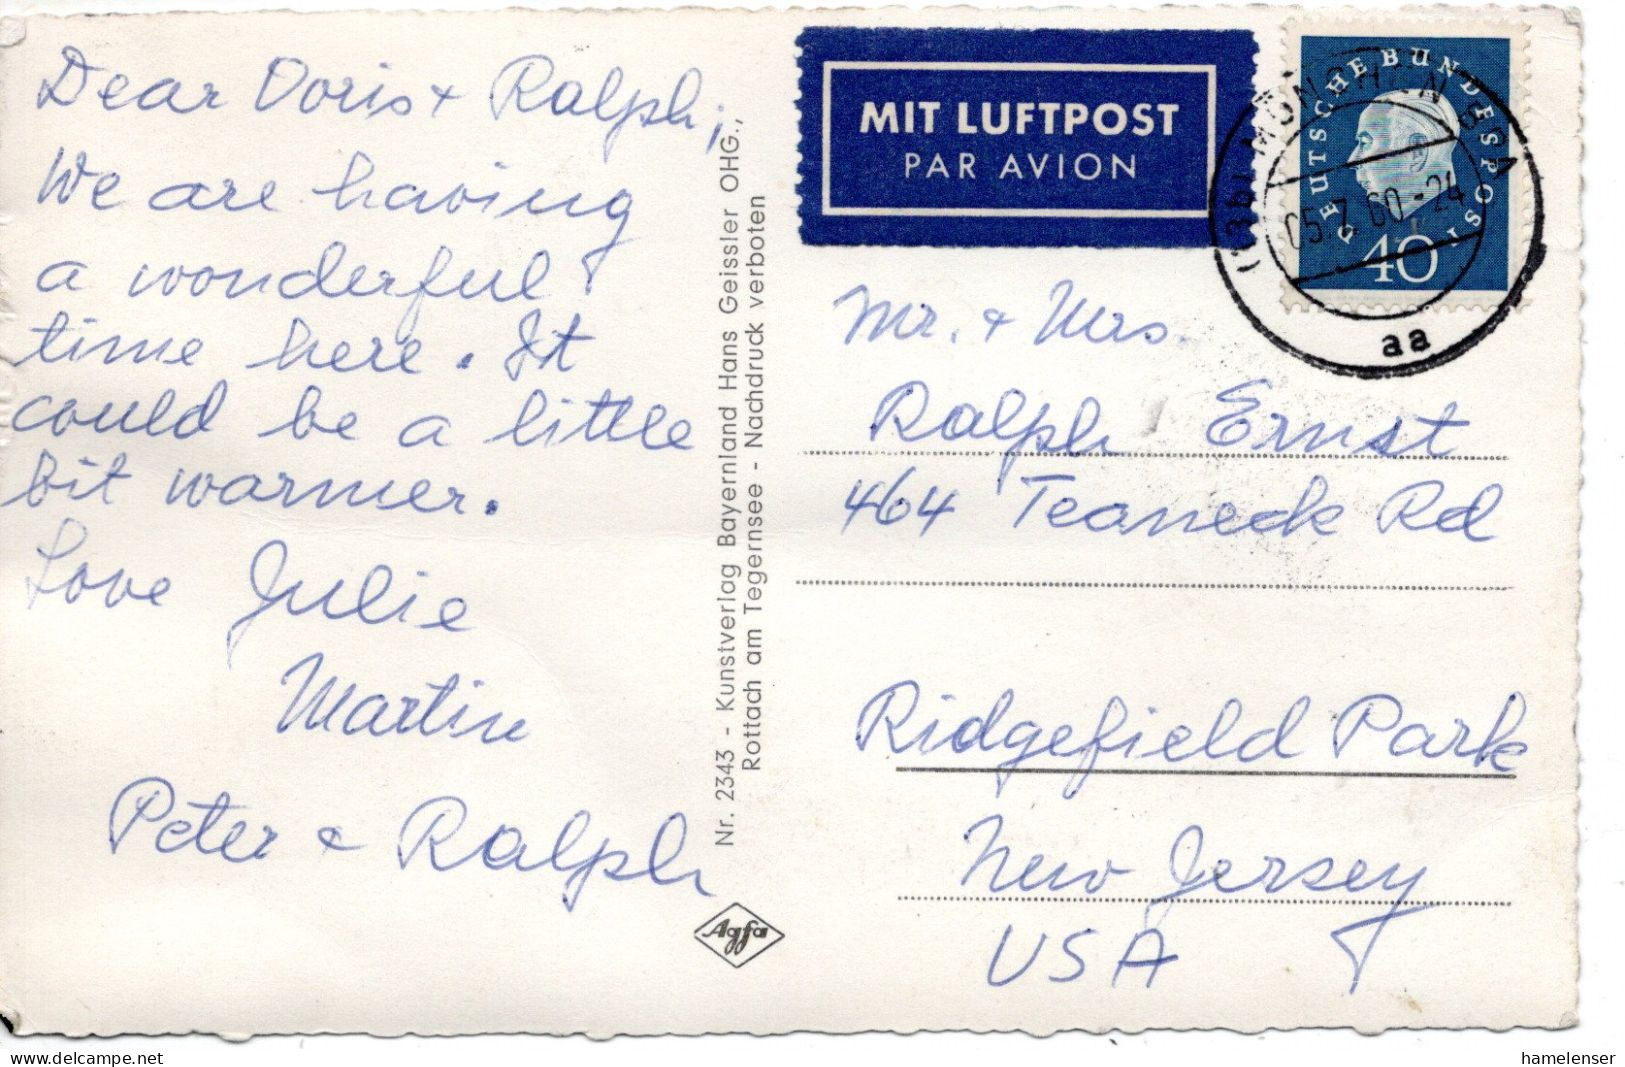 Dear Doris + Ralph;
We are having
a wonderful
time here. It
could be a little
bit warmer.
Love Julie
Martin
Peter + Ralph
Nr. 2343 - Kunstverlag Bayernland Hans Geissler OHG.,
Rottach am Tegernsee - Nachdruck verboten
Agfa
MIT LUFTPOST
PAR AVION
DEUTSCHE BUNDESPOST
40
(13b) MÜNCHEN BPA
05.7.60-24
aa
Mr. + Mrs.
Ralph Ernst
464 Teaneck Rd
Ridgefield Park
New Jersey
USA
delcampe.net
hamelenser